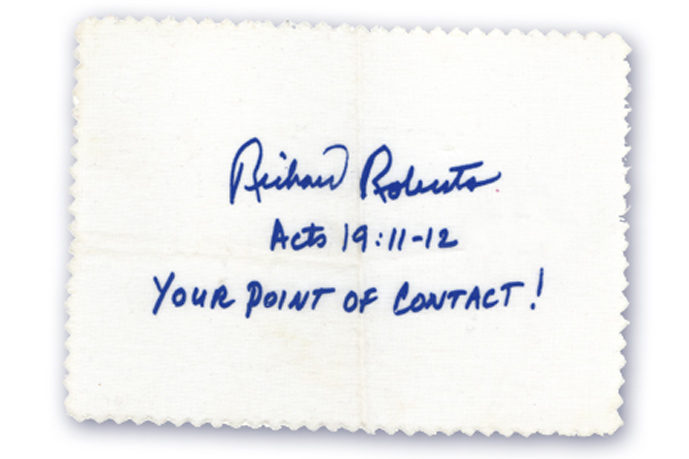 Richard Roberts
Acts 19:11-12
YOUR POINT OF CONTACT!